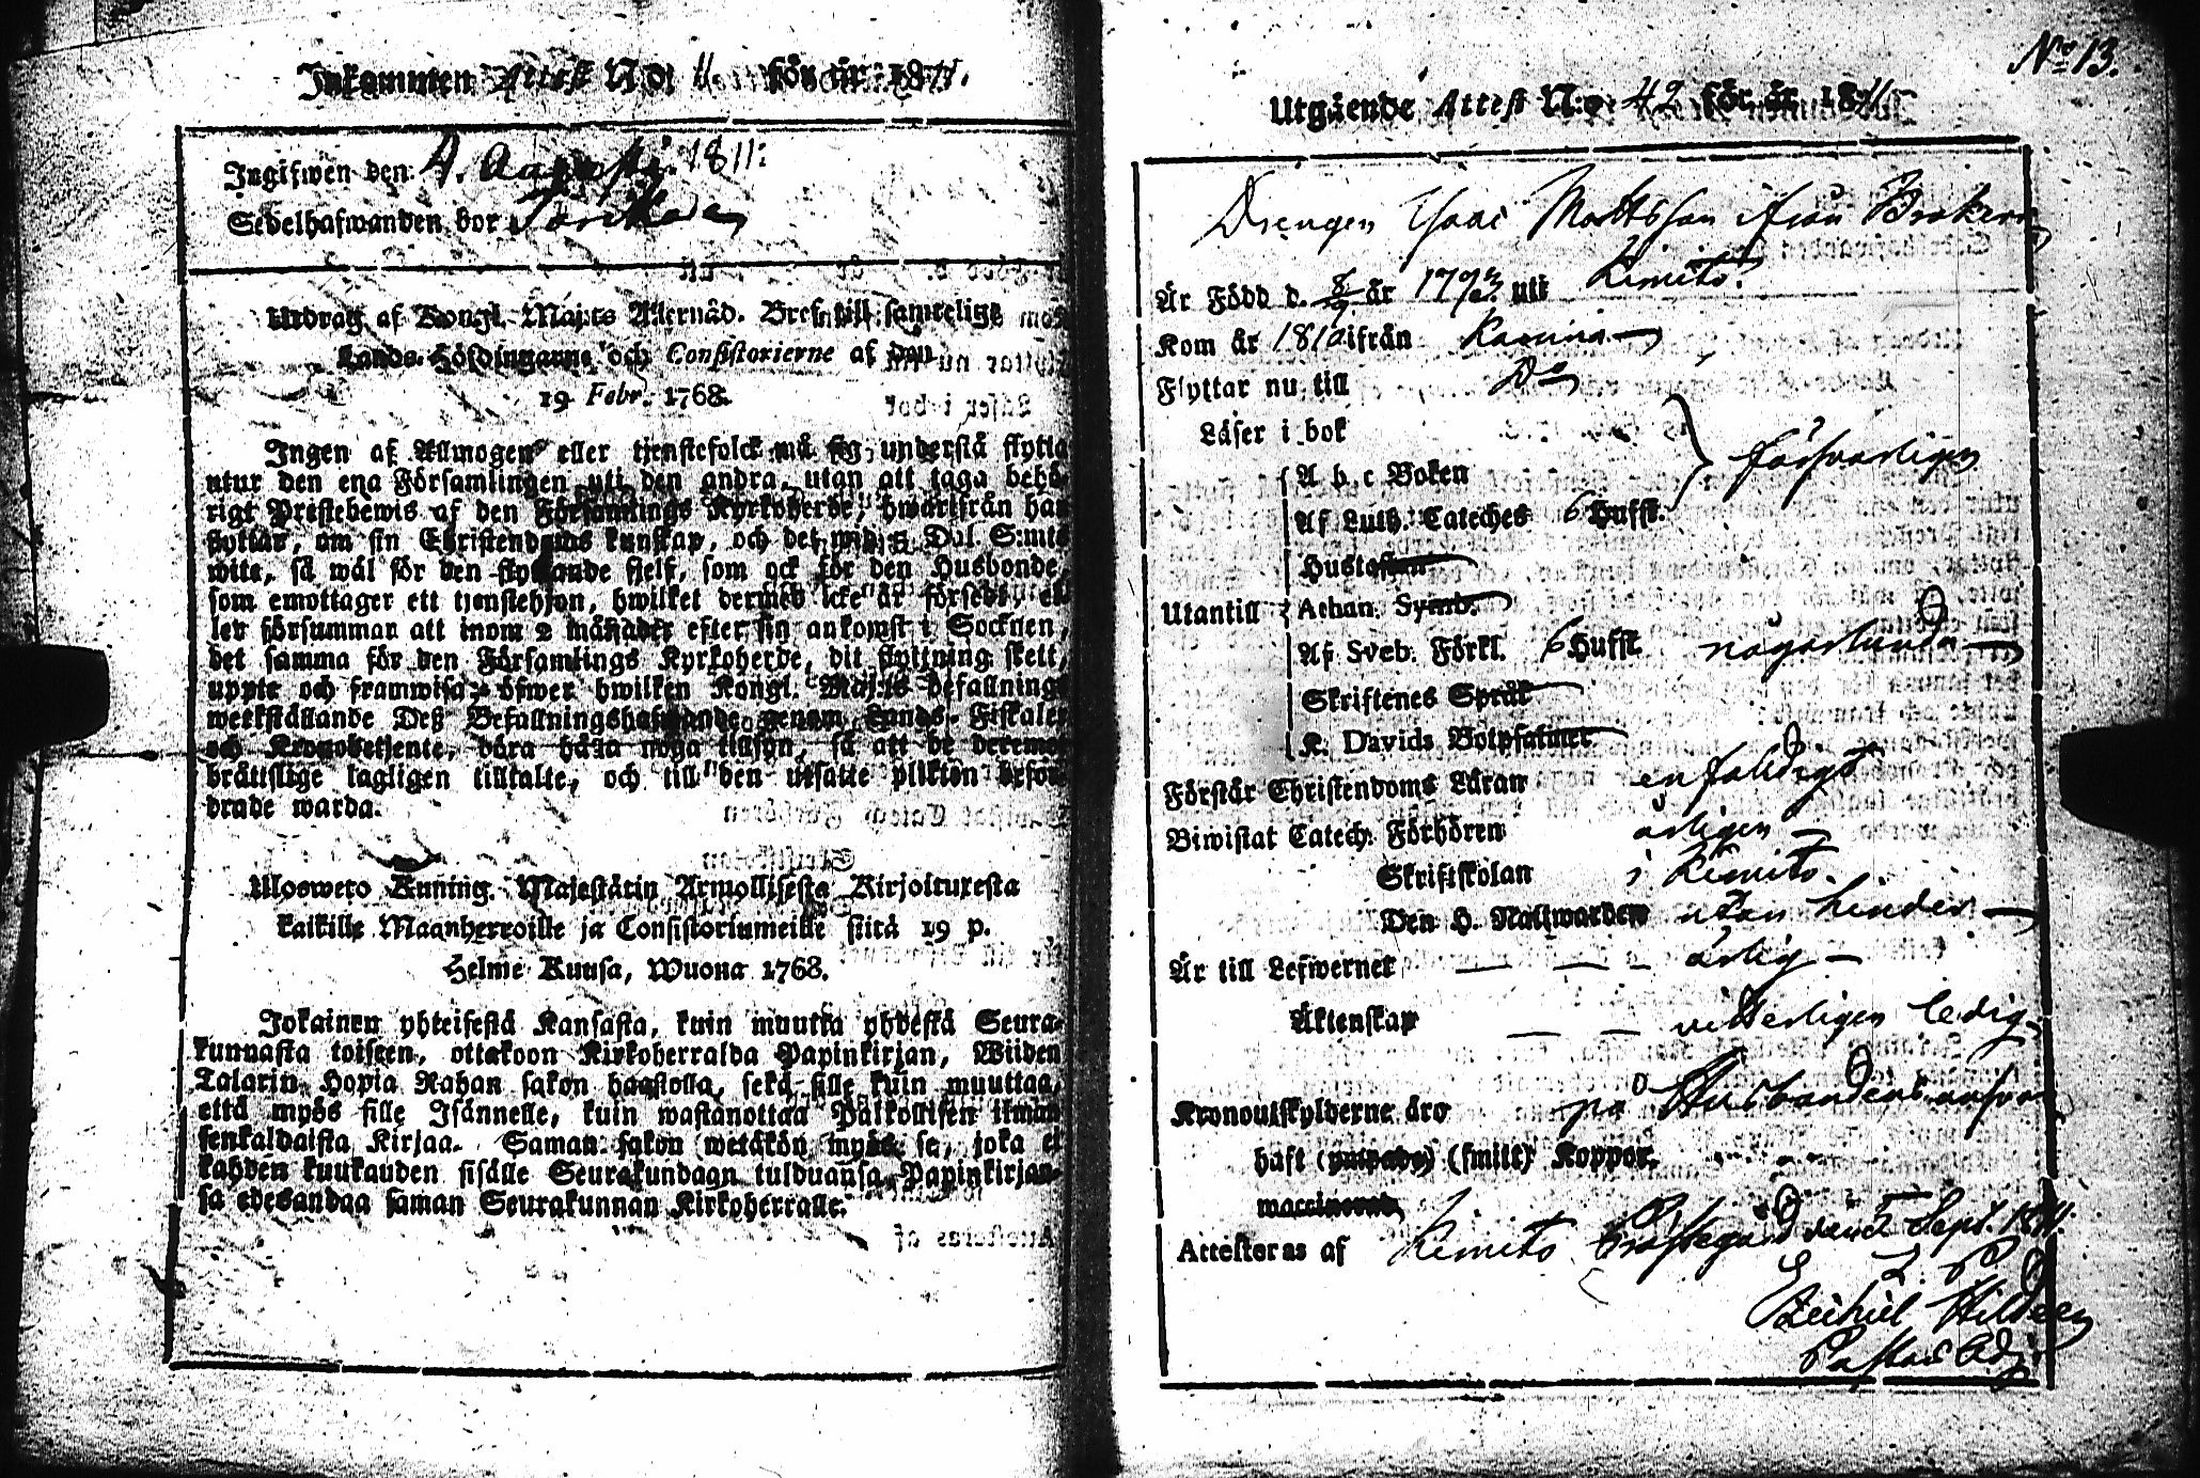 Inkommen Attest N:o för år 1811.
Ingifwen den: Augusti 1811:
Sedelhafwanden bor
Utdrag af Kongl. Maj:ts Allernåd. Bref till samtelige
Lands-Höfdingarne och Consistorierne af den
19 Febr. 1768.
Ingen af Allmogen eller tjenstefolck må sig understå flytta
utur den ena Församlingen uti den andra, utan att taga behö-
rigt Prestebewis af den Församlings Kyrkoherde, hwarifrån han
flyttar, om sin Christendoms kunskap, och det wid 5 Dal. S:mts
wite, så wäl för den flyttande sjelf, som ock för den Husbonde,
som emottager ett tjenstehjon, hwilket dermed icke är försedt, el-
ler försummar att inom 2 månader efter sin ankomst i Socknen,
det samma för den Församlings Kyrkoherde, dit flyttning skett,
uppte och framwisa; öfwer hwilken Kongl. Maj:ts befallnings
werkställande Deß Befallningshafwande genom Lands-Fiskaler
och Kronobetjente, böra hålla noga tillsyn, så att de deremot
brättslige lagligen tilltalte, och till den utsatte plikten befor-
drade warda.
Ulosweto Kuning. Majestätin Armollisesta Kirjoituxesta
kaikille Maanherroille ja Consistoriumeille siitä 19 p.
Helme Kuusa, Wuona 1768.
Jokainen yhteisestä Kansasta, kuin muutta yhdestä Seura-
kunnasta toiseen, ottakoon Kirkoherralda Papinkirjan, Wiiden
Talarin Hopia Rahan sakon haastolla, sekä sille kuin muuttaa,
että myös sille Isännelle, kuin wastanottaa Palkollisen ilman
senkaldaista Kirjaa. Saman sakon wetäkön myös se, joka ei
kahden kuukauden sisälle Seurakundaan tulduansa Papinkirjan-
sa edesandaa saman Seurakunnan Kirkoherralle.
No 13.
Utgående Attest N:o 42 för år 1811
Drengen Isaac Mattsson ifrån
Är Född d. 8/9 år 1793 uti Kimito.
Kom år 1810 ifrån
Flyttar nu till Do
Läser i bok
A b c Boken försvarligen
Af Luth. Cateches 6 Hufst.
Hustaflan
Utantill Athan. Symb.
Af Sveb. Förkl. 6 Hufst. någorlunda
Skriftenes Språk
K. Davids Botpsalmer
Förstår Christendoms Läran enfaldigt
Biwistat Catech. Förhören årligen
Skriftskolan i Kimito.
Den H. Nattwarden utan hinder
Är till Lefwernet ärlig
Äktenskap vitterligen ledig
Kronoutskylderne äro på Husbondens answar
haft (smitt) Koppor.
Attesteras af Kimito Prästegård den 5 Sept. 1811.
Ezechiel
Pastors Adj.